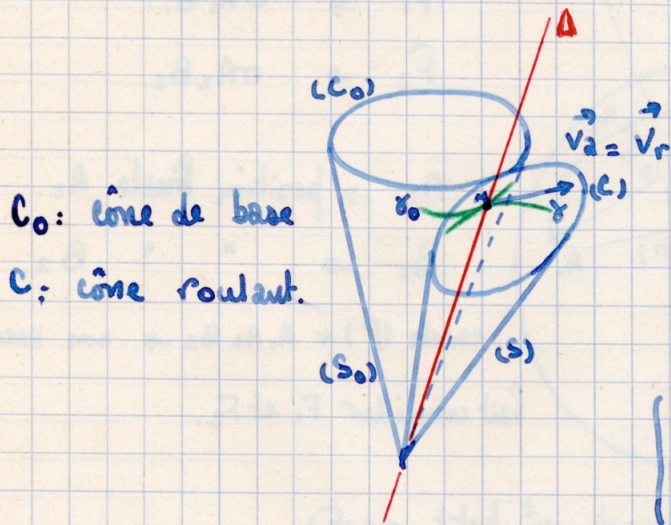 Δ
(C₀)
V⃗a = V⃗r
(C)
γ₀ γ
C₀: cône de base
C: cône roulant.
(S₀)
(S)